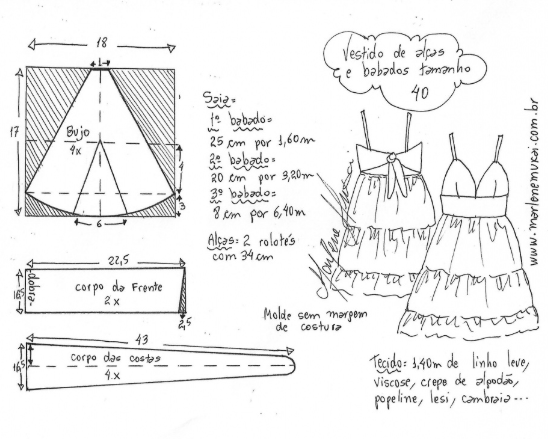 18
1
17
Bujo
4x
4
3
6
22,5
dobra
16,5
corpo da Frente
2 x
2,5
43
16,5
corpo das costas
4 x
Saia=
1º babado=
25 cm por 1,60m
2º babado=
20 cm por 3,20m
3º babado=
8 cm por 6,40m
Alças: 2 rolotês
com 34 cm
Molde sem margem
de costura
Vestido de alças
e babados tamanho
40
www.marlenemukai.com.br
Marlene Mukai
Tecido: 1,40m de linho leve,
viscose, crepe de algodão,
popeline, lesi, cambraia...